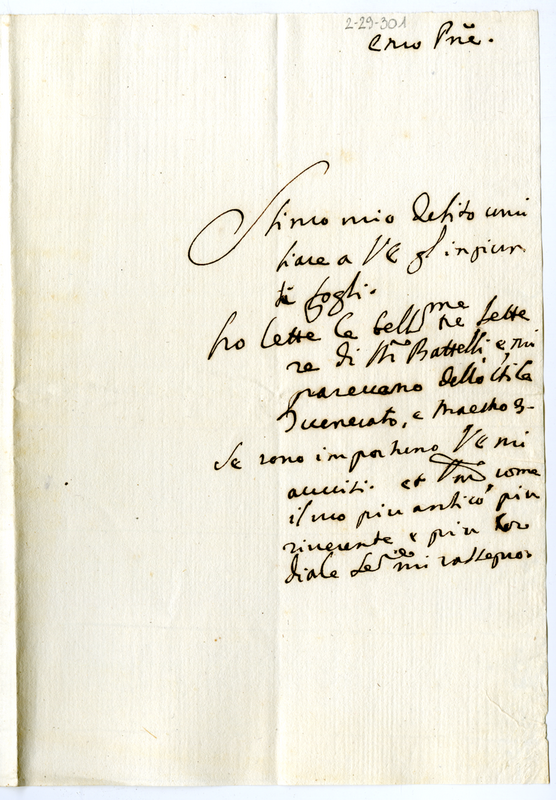 2-29-301
Emo Pñe.
Stimo mio debito umi
liare a VE gl'ingiun
ti fogli.
Ho lette le bellme tre lette
re di Mr Battelli, e mi
parevano dello stile
venerato, e Maestro
Se sono importuno VE mi
avvisi. et come
il suo più antico, più
riverente e più cor
diale Serre mi rassegno